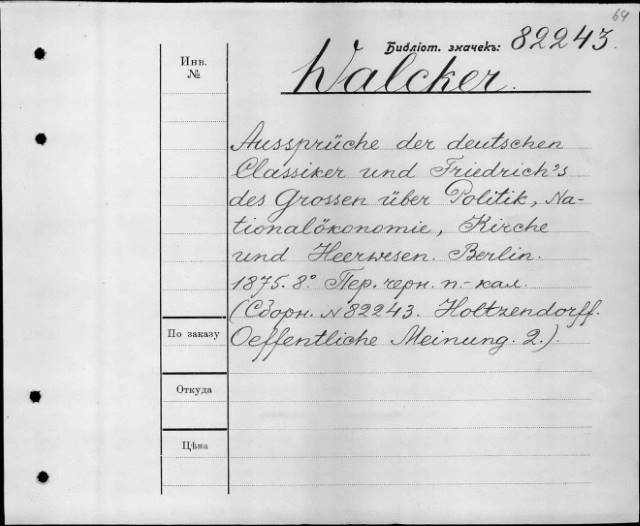 64
Библіот. значекъ: 82243.
Инв.
№
Walcker.
Aussprüche der deutschen
Classiker und Friedrich's
des Grossen über Politik, Na-
tionalökonomie, Kirche
und Heerwesen. Berlin.
1875. 8° Пер. черн. п.-кал.
(Сборн. № 82243. Holtzendorff.
По заказу
Oeffentliche Meinung. 2.).
Откуда
Цѣна